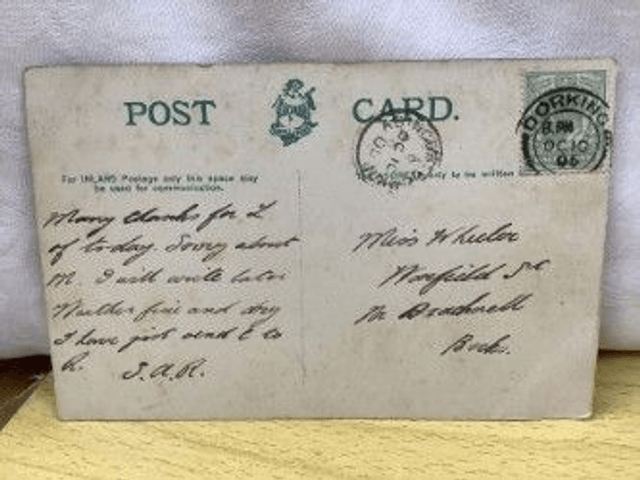 POST CARD.
DORKING
8. PM
OC 10
06
For INLAND Postage only this space may
be used for communication.
only to be written
Many thanks for L
of to-day. Sorry about
M. I will write later
Weather fine and dry
I have just send E to
R. J.A.R.
Miss Wheeler
Warfield
Nr Bracknell
Berks.